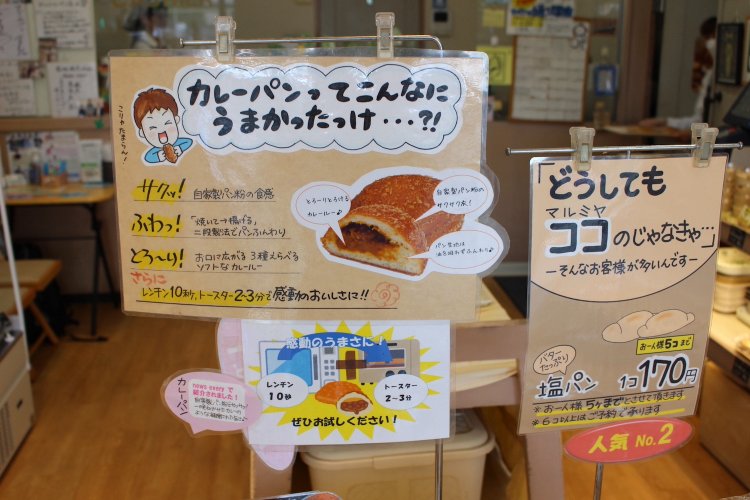 カレーパンってこんなに
うまかったっけ・・・?!
こりゃたまらん!
サクッ! 自家製パン粉の食感
ふわっ! 「焼いて→揚げる」
二段製法でパンふんわり
とろ〜り! お口に広がる 3種えらべる
ソフトなカレールー
さらに
レンチン10秒、トースター2-3分で感動のおいしさに!!
とろーりとろける
カレールー♪
自家製パン粉の
サクサク衣!
パン生地は
油を吸わずふんわり♪
感動のうまさん!
レンチン
10秒
トースター
2〜3分
ぜひお試しください!
news everyで
紹介されました!
カレーパン
「どうしても
マルミヤ
ココのじゃなきゃ…」
ーそんなお客様が多いんですー
お一人様5コまで
バター
たっぷり
塩パン 1コ170円
※お一人様 5ヶまでとさせて頂きます
※6コ以上はご予約で承ります
人気 No.2